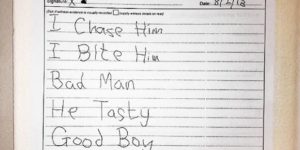 Signature: X
Date: 8/2/18
I Chase Him
I Bite Him
Bad Man
He Tasty
Good Boy